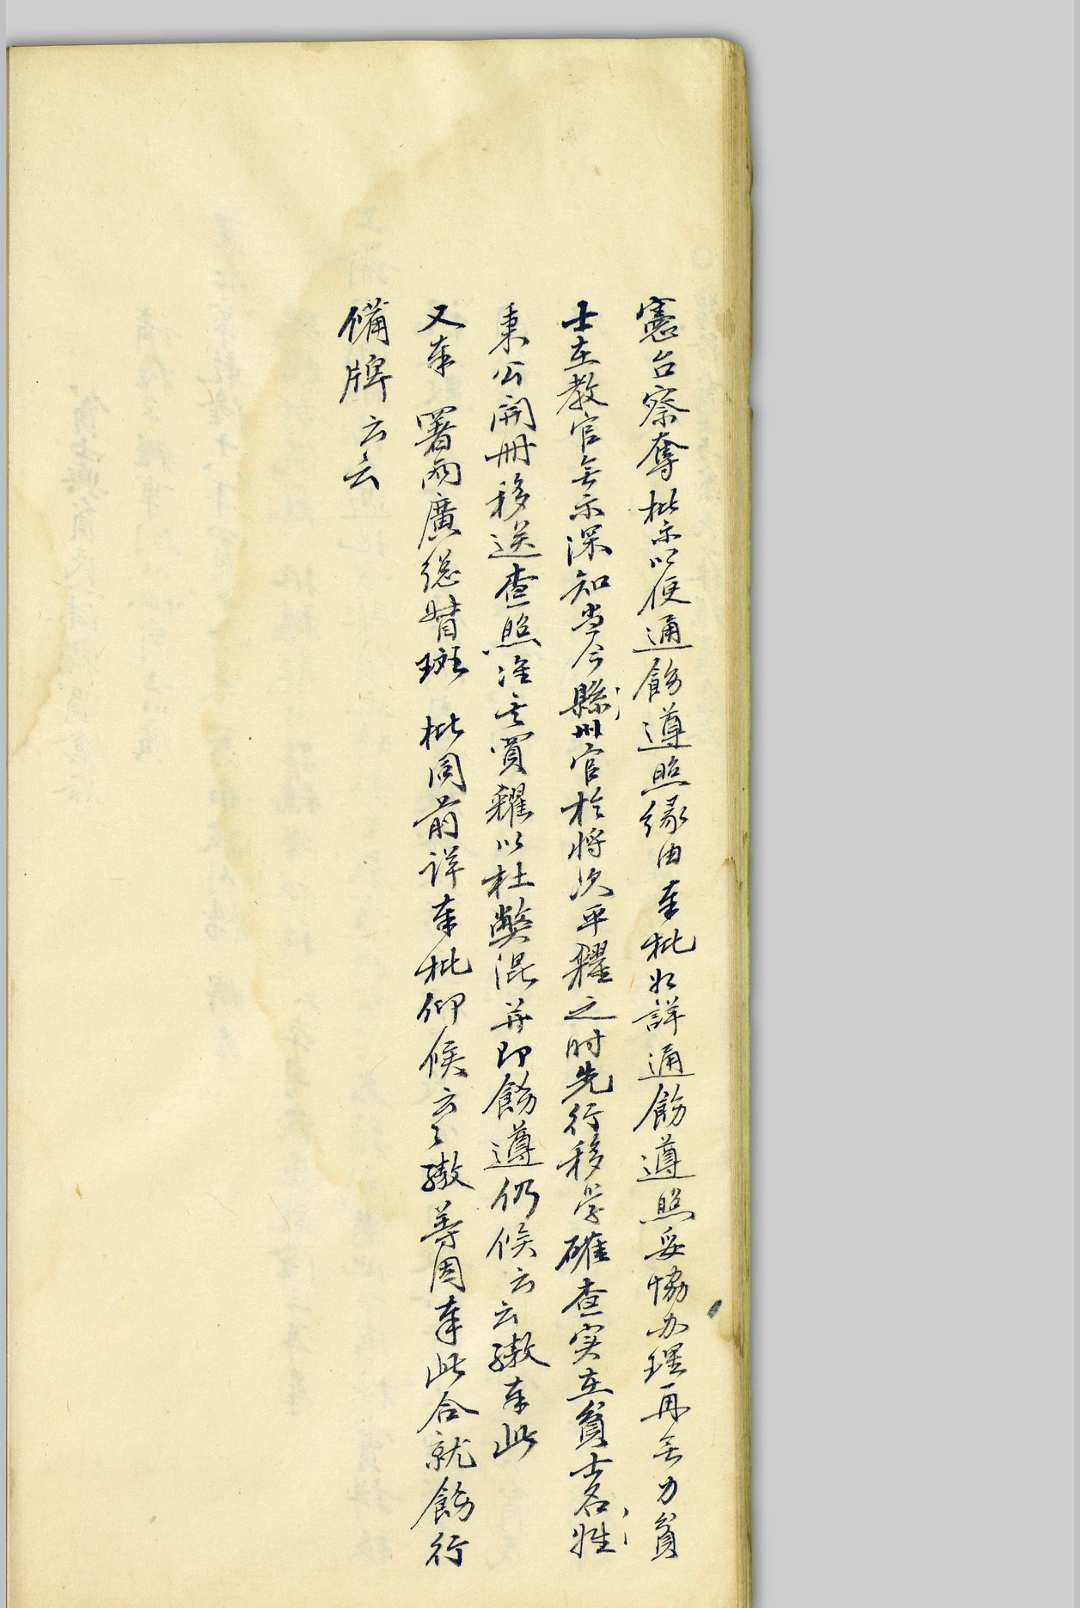 憲台察奪批示以便通飭遵照緣由奉批如詳通飭遵照妥協办理再無力貧
士在教官無不深知當令縣州官於將次平糶之时先行移学確查实在貧士名姓
秉公開冊移送查照准其買糶以杜弊混并即飭遵仍候云云繳奉此
又奉 署兩廣總督班 批同前詳奉批仰候云云繳等因奉此合就飭行
備牌云云